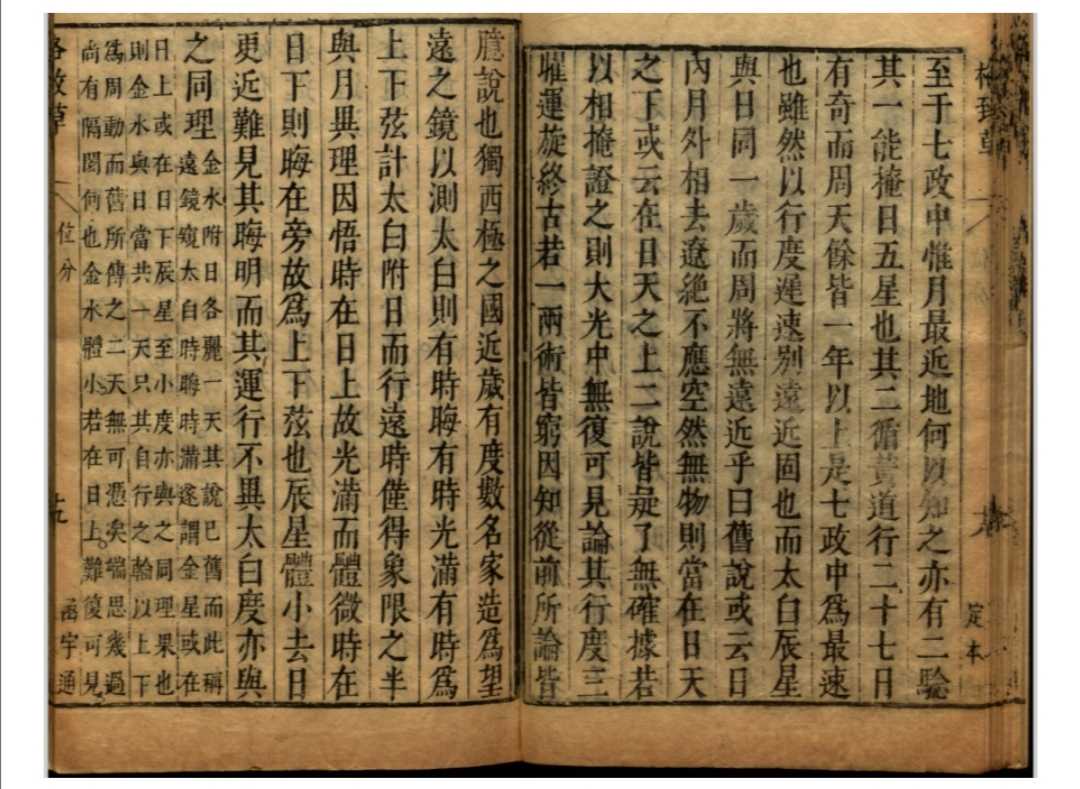 格致草
定本
至于七政中惟月最近地何以知之亦有二驗
其一能掩日五星也其二循黃道行二十七日
有奇而周天餘皆一年以上是七政中為最速
也雖然以行度遲速別遠近固也而太白辰星
與日同一歲而周將無遠近乎曰舊說或云日
內月外相去遼絶不應空然無物則當在日天
之下或云在日天之上二說皆疑了無確據若
以相掩證之則大光中無復可見論其行度三
曜運旋終古若一兩術皆窮因知從前所論皆
臆說也獨西極之國近歲有度數名家造為望
遠之鏡以測太白則有時晦有時光滿有時為
上下弦計太白附日而行遠時僅得象限之半
與月異理因悟時在日上故光滿而體微時在
日下則晦在旁故為上下弦也辰星體小去日
更近難見其晦明而其運行不異太白度亦與
之同理
金水附日各麗一天其說已舊而此稱
遠鏡窺太白時晦時滿遂謂金星或在
日上或在日下辰星至小度亦與之同理果也
則金水與日當共一天只其自行之輪以上下
為周動而舊所傳之二天無可憑矣端思幾過
尚有隔閡何也金水體小若在日上難復可見
格致草
位分
十九
函宇通